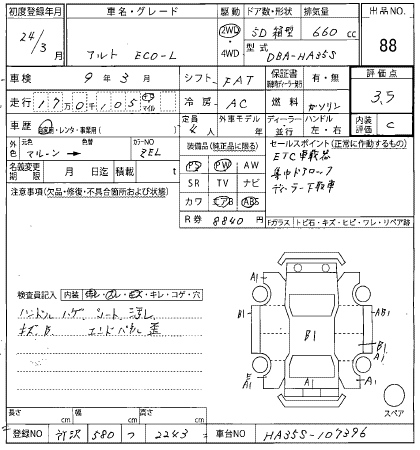 初度登録年月 車名・グレード 駆動 ドア数・形状 排気量 出品NO.
24/3月 アルト ECO-L 2WD・4WD 5D 箱型 660 cc 88
型式 DBA-HA35S
車検 9年3月 シフト FAT 保証書 有・無 評価点
走行 17万0千105 km マイル 冷房 AC 燃料 ガソリン 3.5
車歴 自家用・レンタ・事業用( ) 定員 4人 外車モデル 年 ディーラー・並行 ハンドル 左・右 内装評価 C
外色 元色 マルーン → 色替 カラーNO ZEL
装備品(純正品に限る)
セールスポイント(正常に作動するもの)
名義変更期限 月 日迄 積載 t
PS PW AW
ETC車載器
注意事項(欠品・修復・不具合箇所および状態)
SR TV ナビ
集中ドアロック
カワ エアB ABS
ディーラー下取車
R券 8840円
Fガラス トビ石・キズ・ヒビ・ワレ・リペア跡
A1
検査員記入 内装 ヨレ・スレ・キズ・キレ・コゲ・穴
B1 AB1
ハンドル ハゲ シート 汚れ
B1 B1
キズ、B エンドパネル 歪
A1
A1 A1 A1
長さ cm 幅 cm 高さ cm
スペア
登録NO 所沢 580 つ 2243 車台NO HA35S-107396